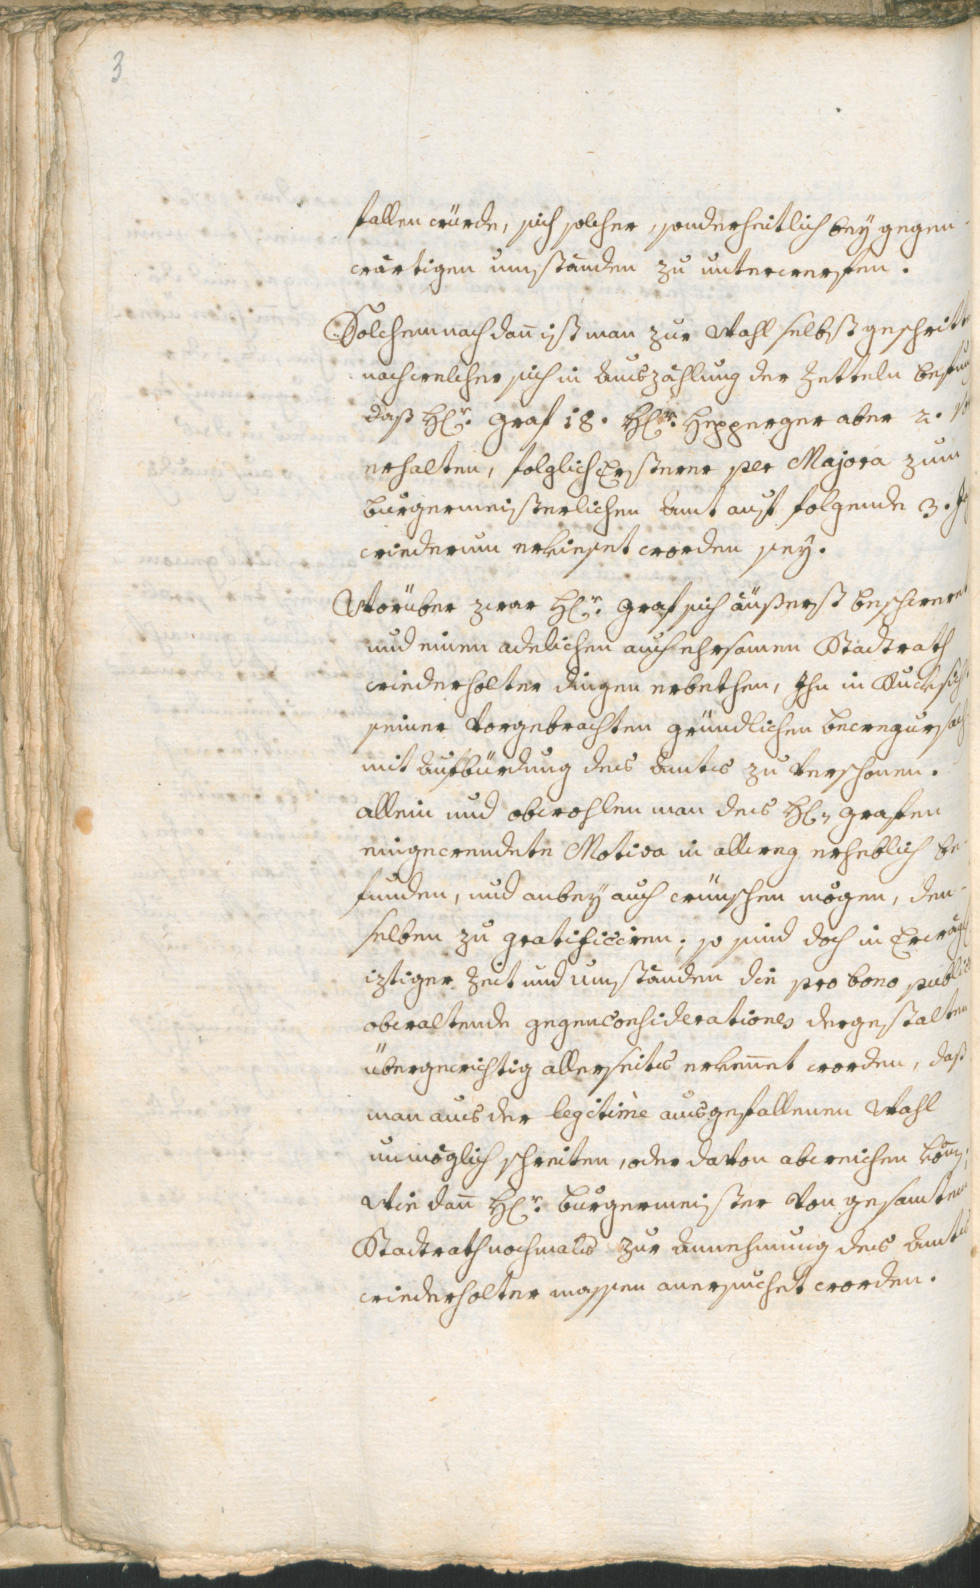 3
fallen würde, sich solcher, sonderheitlich bey gegen-
wärtigen umständen zu unterwerffen.
Solchemnach dan̄ ist man zur Wahl selbst geschritt
nach welcher sich in auszählung der Zetteln befun
daß H: Graf 18. H: Hepperger aber 2.
erhalten, folglich Ersterer per Majora zum
burgermeisterlichen Amt auf folgende 3. J
wiederum erkieset worden sey.
Worüber zwar H: Graf sich äußerst beschweret
und einen adelichen auch ehrsamen Stadtrath
wiederholter dingen erbethen, Ihn in Rucksich
seiner vorgebrachten gründlichen bewegursach
mit aufbürdung des amts zu verschonen.
allein und obwohlen man des H: Grafen
eingewendete Motiva in allweg erheblich be-
funden, und anbey auch wünschen mögen, den-
selben zu gratificiren; so sind doch in Erwäg
iztiger Zeit und umständen die pro bono public
obwaltende gegenconsiderationes dergestalten
übergewichtig allerseits erken̄et worden, daß
man aus der legitimè ausgefallenen Wahl
unmöglich schreiten, oder davon abweichen kön̄e;
Wie dan̄ H: burgermeister von gesamten
Stadtrath nochmals zur annehmung des amts
wiederholter massen anersuchet worden.